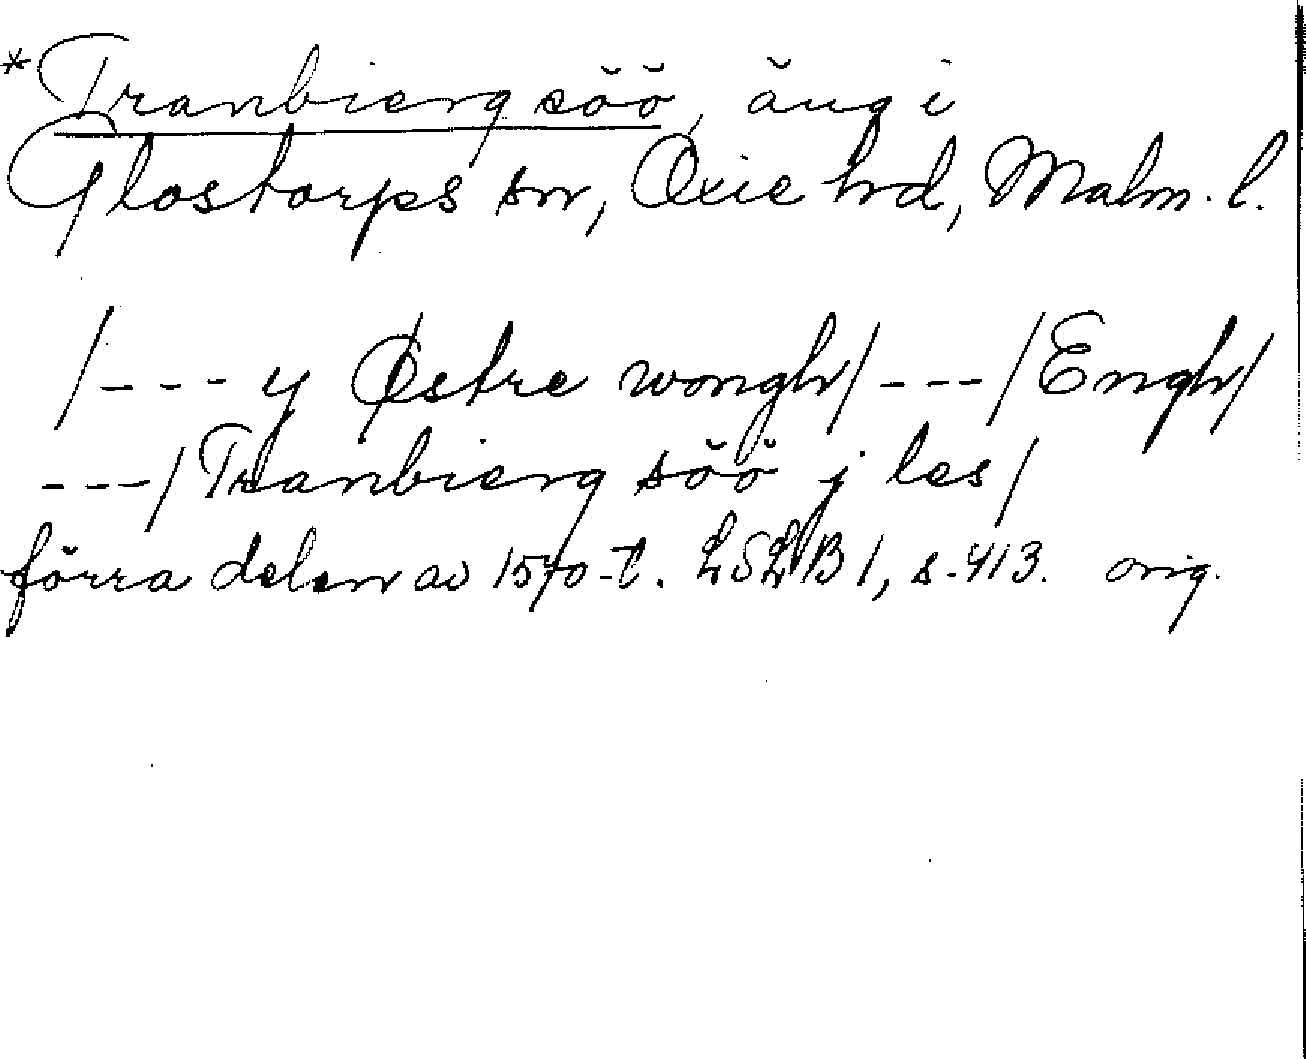 *Tranbierg söö, äng i
Glostorps sn, Oxie hd, Malm. l.
/--- y Østre wongh/---/Engh/
---/Tranbierg söö j les/
förra delen av 1570-t. LSLB 1, s. 413. orig.